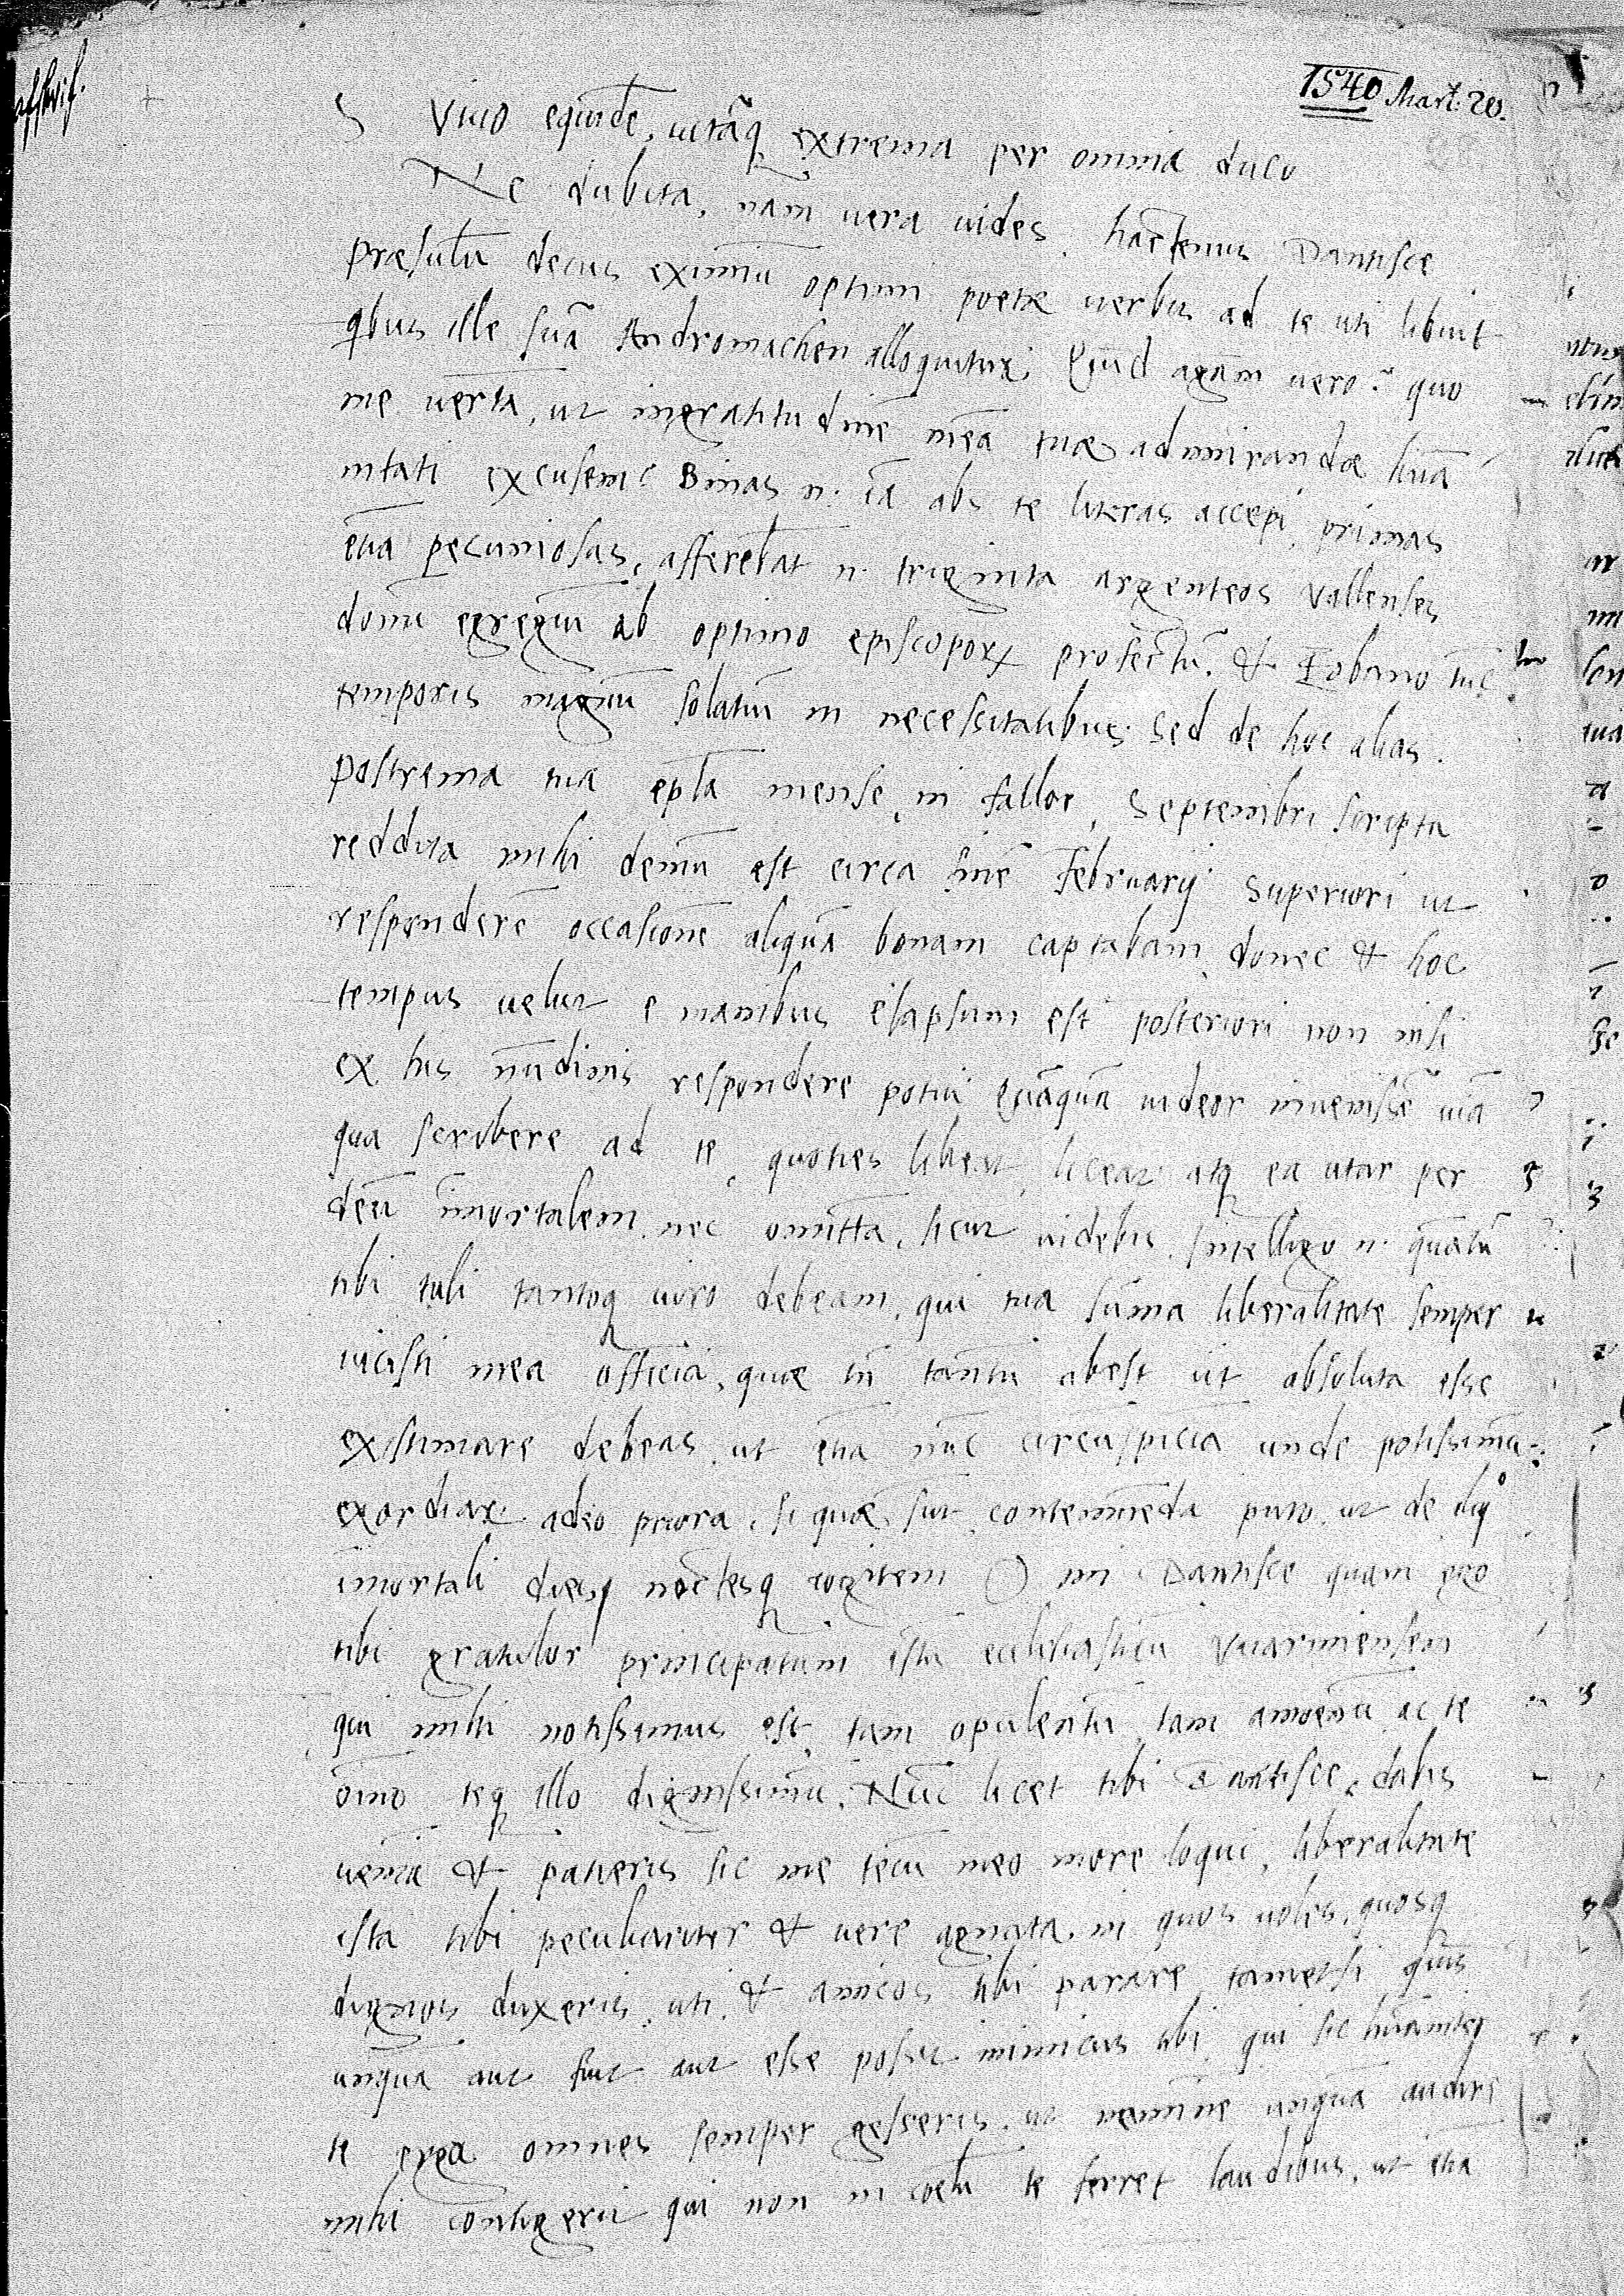 1540 Mart: 20.
S Viuo equidē, uitāq̨ extrema per omnia duco
Ne dubita, nam uera uides. hactenus Dantisce
præsulū decus eximiū optimi poetæ uerbis ad te uti libuit
qbus ille suā Andromachen alloquitur. Quid agam uero? quo
me uertā, ut ingratitudinē meā tuæ admirandæ humā
nitati excusem? Binas n. iā abs te literas accepi, primas
etiā pecuniosas, afferebāt n. triginta argenteos Vallenses
donū egregiū ab optimo episcoporȝ profectū, & Eobano tūc
temporis magnū solatiū in necessitatibus. Sed de hoc alias.
Postrema tua epla mense, ni fallor, Septembri scripta
reddita mihi demū est circa finē Februarij. Superiori ut
responderē occasionē aliquā bonam captabam, donec & hoc
tempus uelut e manibus elapsum est. posteriori non nisi
ex his nūdinis respondere potui. Quāquā uideor inuenisse uiā
qua scribere ad te, quoties libeat, liceat. atq̨ ea utar per
deū īmortalem, nec omittā, sicut uidebis. Intelligo n. quātū
tibi tali tantoq̨ uiro debeam, qui tua sūma liberalitate semper
uicisti mea officia, quæ tn̄ tantū abest ut absoluta esse
existimare debeas, ut etiā nūc circūspiciā unde potissimū
exordiar. adeo priora, si quæ sūt, contemnēda puto, ut de
īmortali dies noctesq̨ cogitem. O mi Dantisce quam ego
tibi gratulor principatum istū ecclesiasticū Varmiensem
qui mihi notissimus est, tam opulentū, tam amoenū, ac te
oīno teq̨ illo dignissimū. Nūc licet tibi Dantisce, dabis
ueniā & patieris sic me tecū meo more loqui, liberalitate
ista tibi peculiariter & uere agnata, in quos uoles, quosq̨
dignos duxeris, uti, & amicos tibi parare, tametsi quis
unquā aut fuit aut esse possit inimicus tibi, qui sic humaniter
te erga omnes semper gesseris, ut neminē unquā audire
mihi contigerit qui non in coelū te ferret laudibus, ut etiā